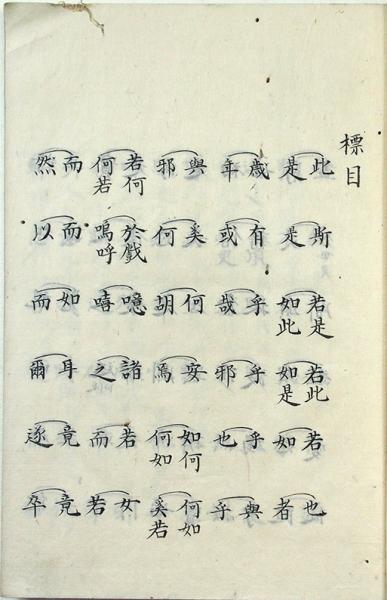 標目
此是
斯是
若是如此
若此如是
若如
也者
歳年
有或
乎哉
乎邪
乎也
與乎
與邪
奚何
何胡
安焉
如何何如
何如奚若
若何何若
於戯嗚呼
噫嘻
諸之
若而
女若
而然
而以
如而
耳爾
竟遂
竟卒